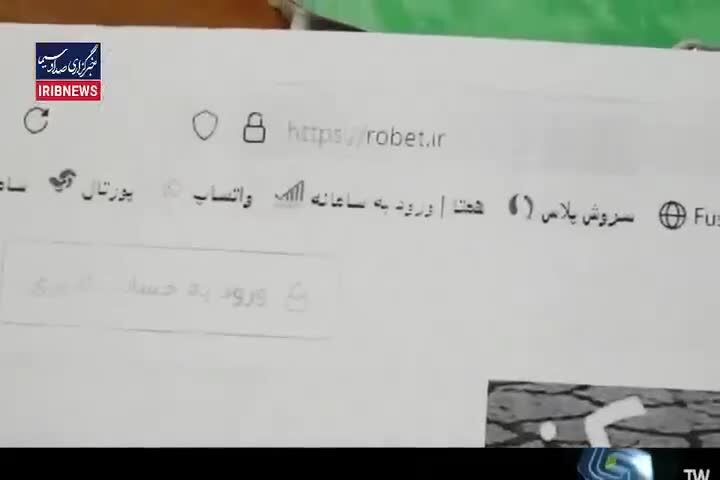 خبرگزاری صداوسیما
IRIBNEWS
https://robet.ir
سروش پلاس همتا | ورود به سامانه واتساپ پورتال
ورود به حساب
TW